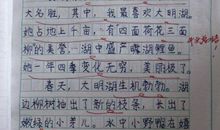 大名胜，其中，我最喜欢大明湖。
她占地上千亩，有四面荷花三面
柳的美誉。湖中盛产螺湖鲤鱼。
她一年四季变化无穷，美丽极了。
春天，大明湖生机勃勃。湖
边柳树抽出了新的枝条，长出了
嫩绿的小芽儿。水中小野鸭在嬉